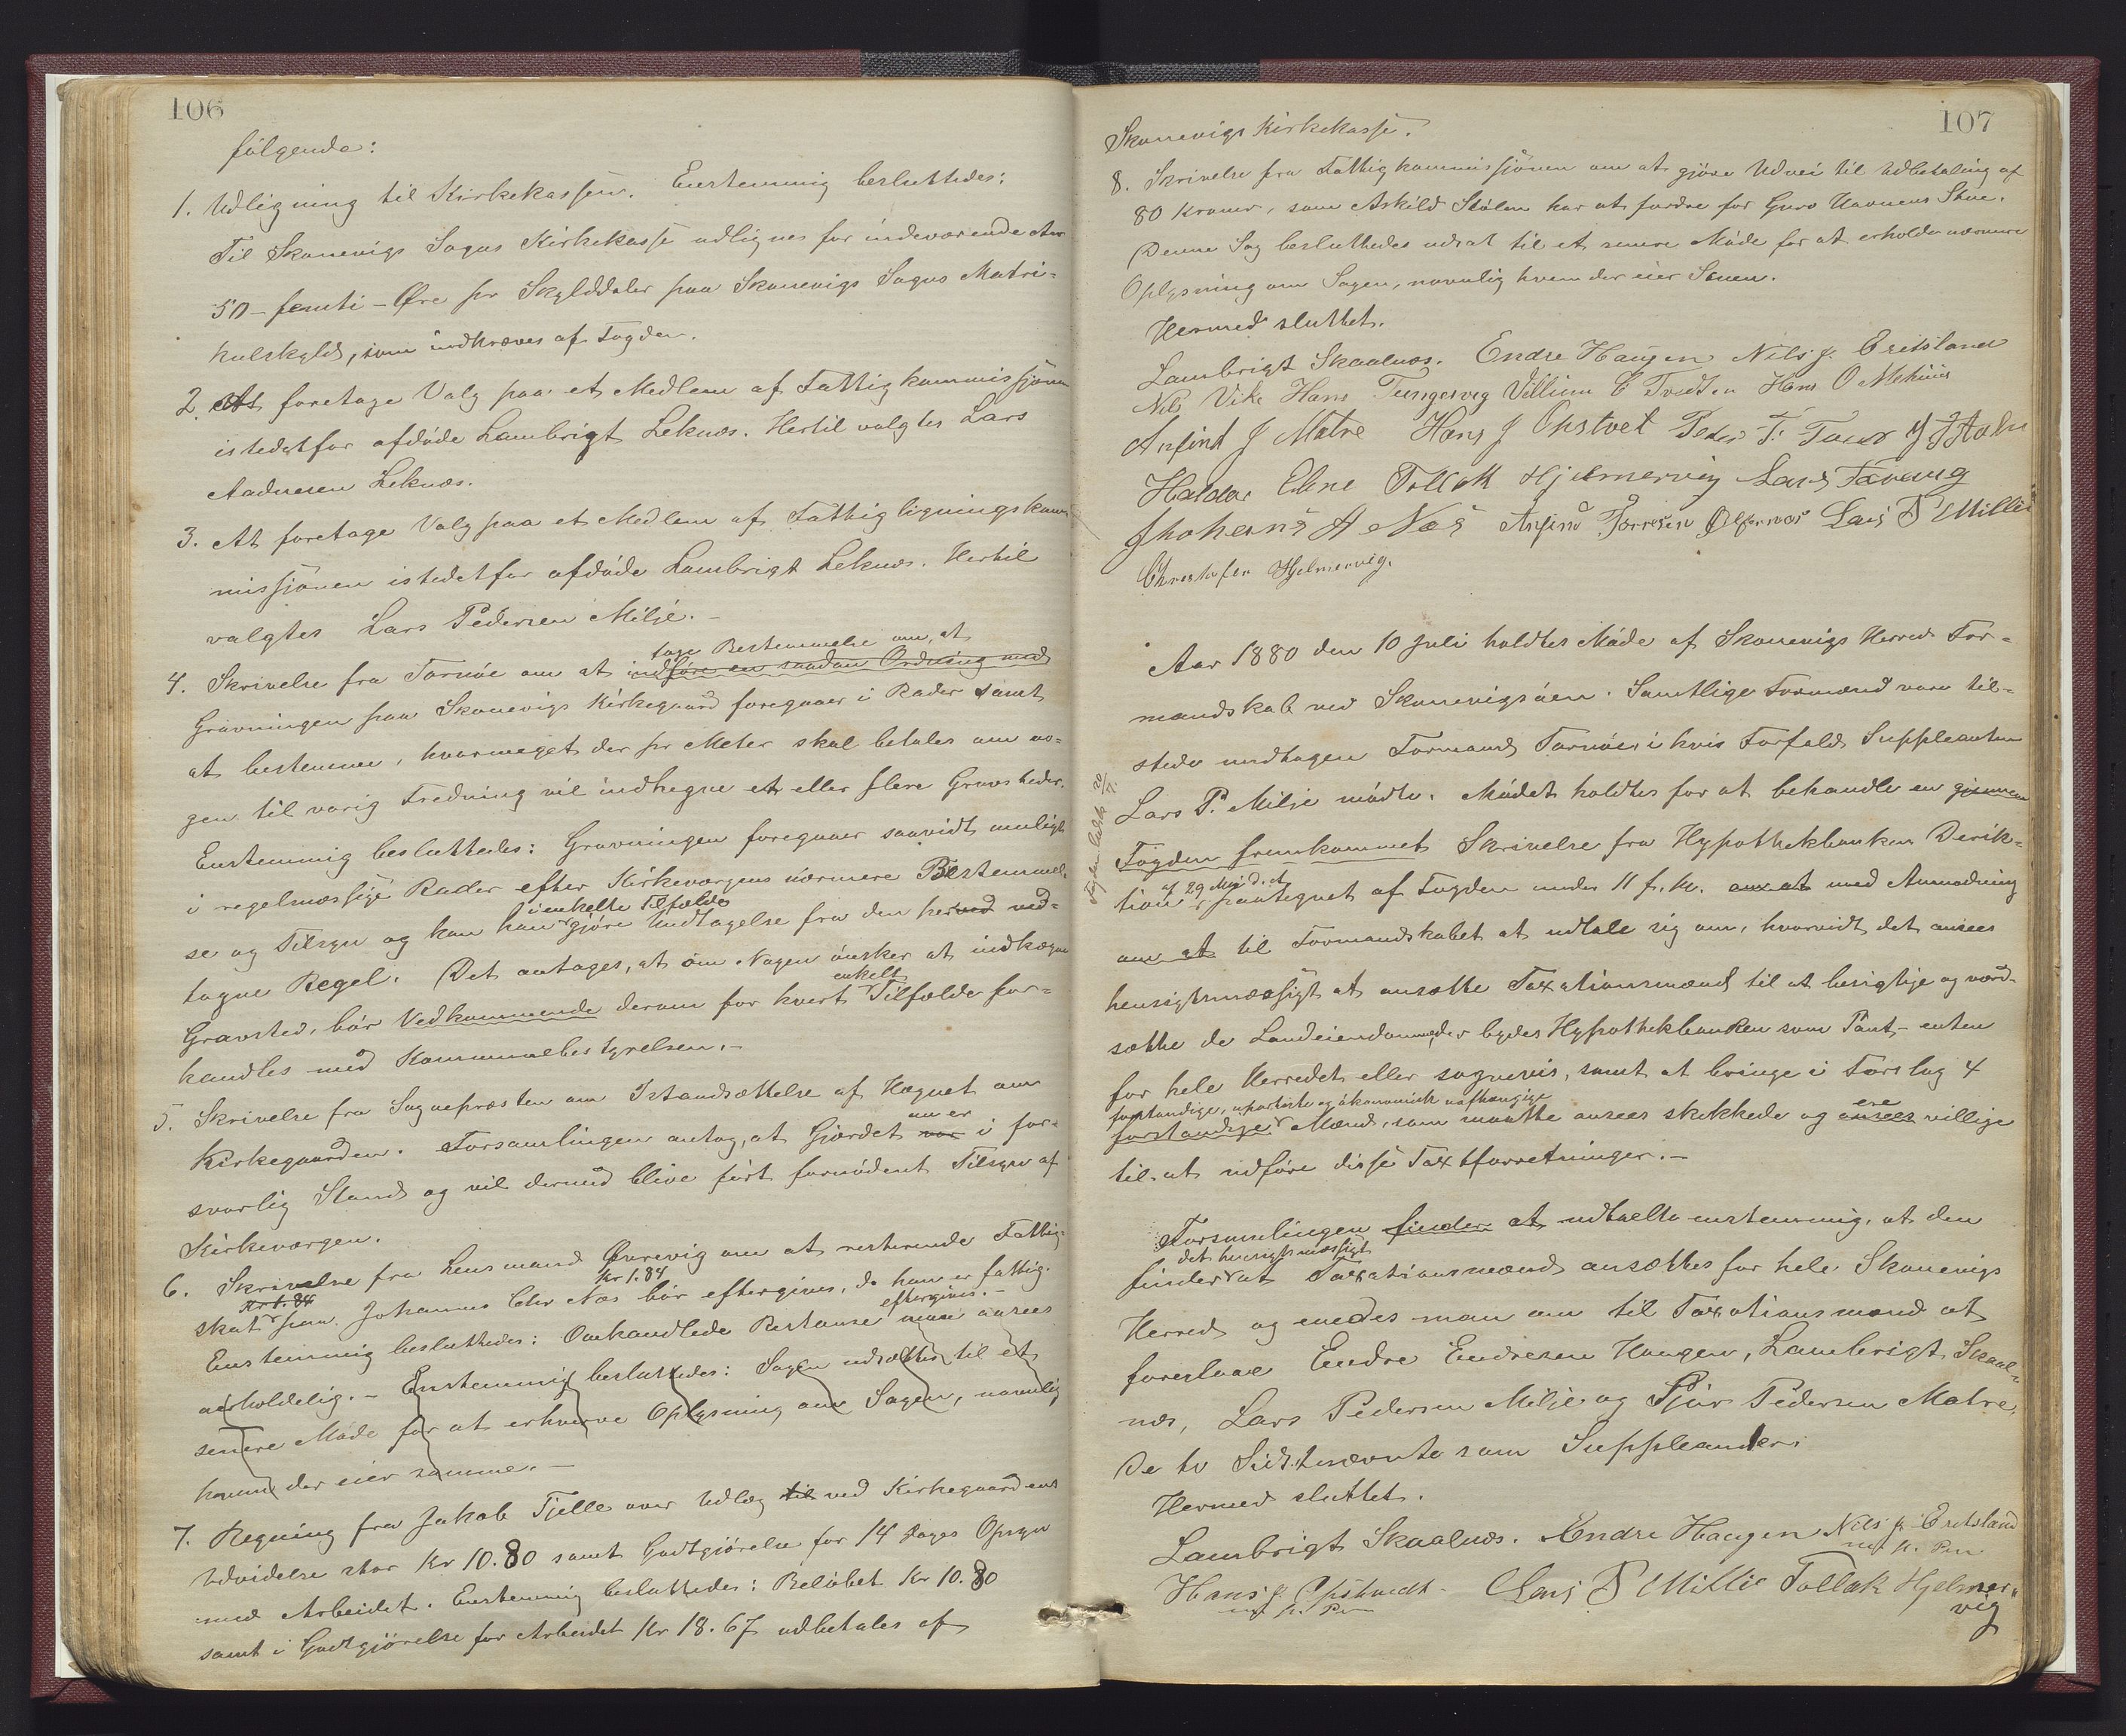 106
følgende:
1. Udligning til Kirkekassen. Enstemmig besluttedes:
Til Skonevigs Sogns Kirkekasse udlignes for indeværende Aar
50 - femti - Øre pr Skylddaler paa Skonevigs Sogns Matri=
kulskyld, som indkræves af Fogden.
2. At foretage Valg paa et Medlem af Fattigkommissjonen
istedetfor afdøde Lambrigt Leknæs. Hertil valgtes Lars
Aadnesen Leknæs.
3. At foretage Valg paa et Medlem af Fattigligningskom
missjonen istedetfor afdøde Lambrigt Leknæs. Hertil
valgtes Lars Pedersen Milje. -
tage Bestemmelse om, at
4. Skrivelse fra Tornøe om at indføre en saadan Ordning med
Gravningen paa Skonevigs Kirkegaard foregaaer i Rader samt
at bestemme, hvormeget der pr Meter skal betales om no=
gen til varig Fredning vil indhegne et eller flere Gravsteder.
Enstemmig besluttedes: Gravningen foregaaer saavidt muligt
i regelmæssige Rader efter Kirkeværgens nærmere Bestemmel=
i enkelte Tilfælde
se og Tilsyn og kan han gjøre Undtagelse fra den herved ved=
tagne Regel. Det antages, at om Nogen ønsker at indhegne
enkelt
Gravsted, bør Vedkommende derom for hvert Tilfælde for=
handles med Kommunebestyrelsen. -
5. Skrivelse fra Sognepræsten om Istandsættelse af Hegnet om
nu er
Kirkegaarden. Forsamlingen antog, at Gjærdet var i for=
svarlig Stand og vil dermed blive ført fornødent Tilsyn af
Kirkeværgen.
6. Skrivelse fra Lensmand Ørrevig om at resterende Fattig=
Kr 1.84 Kr 1.84
skat paa Johannes Chr Næs bør eftergives, da han er fattig.
eftergives. -
Enstemmig besluttedes: Omhandlede Restanse man ansees
uerholdelig. - Enstemmig besluttedes: Sagen udsættes til et
senere Møde for at erhverve Oplysning om Sagen, navnlig
hvem der eier samme. -
7. Regning fra Jakob Tjelle over Udlæg til ved Kirkegaardens
Udvidelse stor Kr 10.80 samt Godtgjørelse for 14 Dages Opsyn
med Arbeidet. Enstemmig besluttedes: Beløbet Kr 10.80
samt i Godtgjørelse for Arbeidet Kr 18.67 udbetales af
107
Skonevigs Kirkekasse.
8. Skrivelse fra Fattigkommissjonen om at gjøre Udvei til Udbetaling af
80 Kroner, som Askild Stølen har at fordre for Guro Havnens Stue.
Denne Sag besluttedes udsat til et senere Møde for at erholde nærmere
Oplysning om Sagen, navnlig hvem der eier Stuen.
Hermed sluttet.
Lambrigt Skaalnæs. Endre Haugen Nils J. Eritsland
Nils Vike Hans Tungesvig Villium C Tvedten Hans O Mehuus
Anfind J Matre Hans J Opstvet Peder T.
Haldor Ebne Tollak Hjelmervig Lars Taraug
Johanes A Næs Anfind Lars P Millie
Christofer Hjelmervig.
Aar 1880 den 10 Juli holdtes Møde af Skonevigs Herred For=
mandskab ved Skonevigsøen. Samtlige Formænd vare til=
stede undtagen Formand Tornøe, i hvis Forfald Suppleanten
Lars P. Milje mødte. Mødet holdtes for at behandle en gjennem
Fogden fremkommet Skrivelse fra Hypothekbanken Direk=
af 29 Mai d. A
tion, paategnet af Fogden under 11 f. M. om at med Anmodning
om at til Formandskabet at udtale sig om, hvorvidt det ansees
hensigtsmæssigt at ansætte Taxationsmænd til at besigtige og værd=
sætte de Landeiendomme, der bydes Hypothekbanken som Pant - enten
for hele Herredet eller sognevis, samt at bringe i Forslag 4
forstandige, upartiske og økonomisk uafhængige ere
forstandige Mænd, som maatte ansees skikkede og ansees villige
til at udføre disse Taxtforretninger. -
Forsamlingen finder at udtalte enstemmig, at den
det hensigtsmæssigt
finder at Taxationsmænd ansættes for hele Skonevigs
Herred og enedes man om til Taxationsmænd at
foreslaae Endre Endresen Haugen, Lambrigt Skaal=
næs, Lars Pedersen Milje og Sjur Pedersen Matre,
De to Sidstnævnte som Suppleanter.
Hermed sluttet.
Lambrigt Skaalnæs. Endre Haugen Nils J. Eritsland
m. p. Pen
Hans J. Opstvedt Lars P Millie Tollak Hjelmer=
m. p. Pen
vig